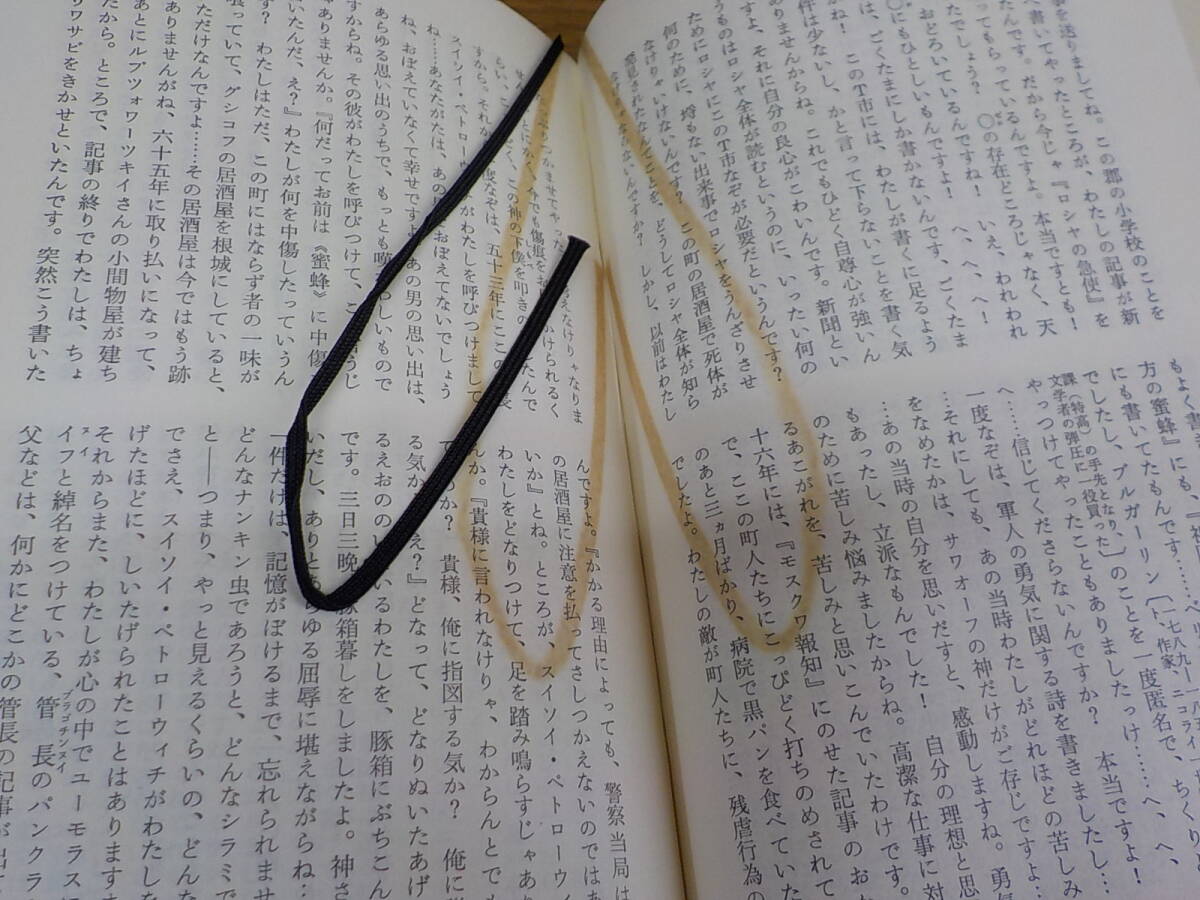 事を送りましてね。この郡の小学校のことを
へ書いてやったところが、わたしの記事が新
たんです。だから今じゃ『ロシヤの急使』を
てもらっているんですよ。本当ですとも！
たでしょう？　〇の存在どころじゃなく、天
おどろいているんですね！　へ、へ、へ！
〇にもひとしいもんですよ！　いえ、われわれ
は、ごくたまにしか書かないんです、ごくたま
がね！　このT市には、わたしが書くに足るよう
件は少ないし、かと言って下らないことを書く気
ありませんからね。これでもひどく自尊心が強いん
すよ、それに自分の良心がこわいんです。新聞とい
うものはロシヤ全体が読むというのに、いったい何の
ためにロシヤにこのT市なぞが必要だというんです？
何のために、埒もない出来事でロシヤをうんざりさせ
なけりゃいけないんです？　この町の居酒屋で死体が
発見されたなんてことを、どうしてロシヤ全体が知ら
なけりゃならないんですか？　しかし、以前はわたし
もよく書
方の蜜蜂』にも
にも書いてたもんです……へ、へ、
でしたし、ブルガーリン〔一七八九―
ト、作家、ニコライ一
課（特高）の手先となっ
文学者の弾圧に一役買った〕のことを一度匿名で、ちくり
やっつけてやったこともありましたっけ……へ、へ、
へ……信じてくださらないんですか？　本当ですよ！
…それにしても、あの当時わたしがどれほどの苦しみ
一度なぞは、軍人の勇気に関する詩を書きましたし…
をなめたかは、サワオーフの神だけがご存じですよ…
…あの当時の自分を思いだすと、感動しますね。勇気
もあったし、立派なもんでした！　自分の理想と思
のために苦しみ悩みましたからね。高潔な仕事に対
るあこがれを、苦しみと思いこんでいたわけです。
十六年には、『モスクワ報知』にのせた記事のおか
で、ここの町人たちにこっぴどく打ちのめされて
のあと三ヵ月ばかり、病院で黒パンを食べていた
でしたよ。わたしの敵が町人たちに、残虐行為の
すから。それから
スイソイ・ペトロー
がわたしを呼びつけまして
ね……あなたがたは、あの
おぼえてないでしょう
ね、おぼえていなくて幸せですよ
あの男の思い出は、
あらゆる思い出のうちで、もっとも嘆
しいもので
すからね。その彼がわたしを呼びつけて、こ
うじ
ゃありませんか。『何だってお前は《蜜蜂》に中傷
いたんだ、え？』わたしが何を中傷したっていうん
す？　わたしはただ、この町にはならず者の一味が
喰っていて、グシコフの居酒屋を根城にしていると、
ただけなんですよ……その居酒屋は今ではもう跡
ありませんがね、六十五年に取り払いになって、
あとにルブツォワーツキイさんの小間物屋が建ち
たから。ところで、記事の終りでわたしは、ちょ
ワサビをきかせといたんです。突然こう書いた
んですよ。『かかる理由によっても、警察当局は
の居酒屋に注意を払ってさしつかえないのではあ
いか』とね。ところが、スイソイ・ペトローウィ
わたしをどなりつけて、足を踏み鳴らすじゃあり
んか。『貴様に言われなけりゃ、わからんとでも
てのか？　貴様、俺に指図する気か？　俺に
る気か、え？』どなって、どなりぬいたあげ
るえおののいているわたしを、豚箱にぶちこん
です。三日三晩、豚箱暮しをしましたよ。神さ
いだし、ありとあらゆる屈辱に堪えながらね…
一件だけは、記憶がぼけるまで、忘れられませ
どんなナンキン虫であろうと、どんなシラミで
と――つまり、やっと見えるくらいの、どんな
でさえ、スイソイ・ペトローウィチがわたしを
げたほどに、しいたげられたことはありません
それからまた、わたしが心の中でユーモラスに
イフと綽名をつけている、管長のパンクラ
父などは、何かにどこかの管長の記事が出て